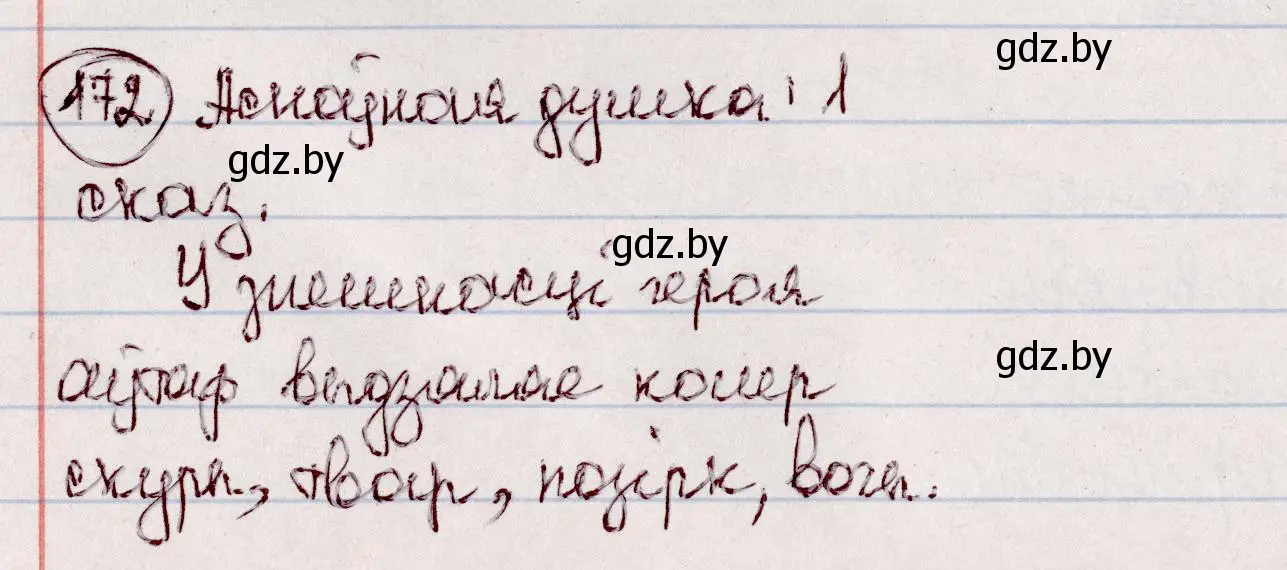 gdz.by
172 Асноўная думка: 1
gdz.by
сказ.
gdz.by
У знешнасці героя
gdz.by
аўтар выдзяляе колер
скуры, твар, позірк, вочы.